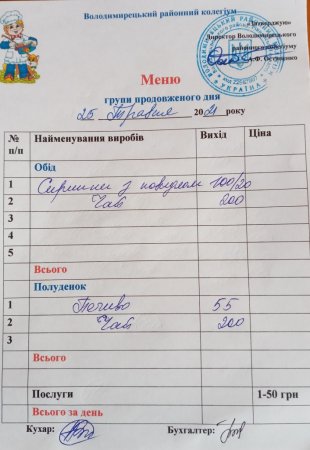 Володимирецький районний колегіум
«Затверджую»
Директор Володимирецького
районного колегіуму
Меню
групи продовженого дня
25 Травня 2021 року
№ п/п Найменування виробів Вихід Ціна
Обід
1 Сирники з повидлом 100/20
2 Чай 200
3
4
5
Всього
Полуденок
1 Печиво 55
2 Чай 200
3
Всього
Послуги 1-50 грн
Всього за день
Кухар: Бухгалтер: